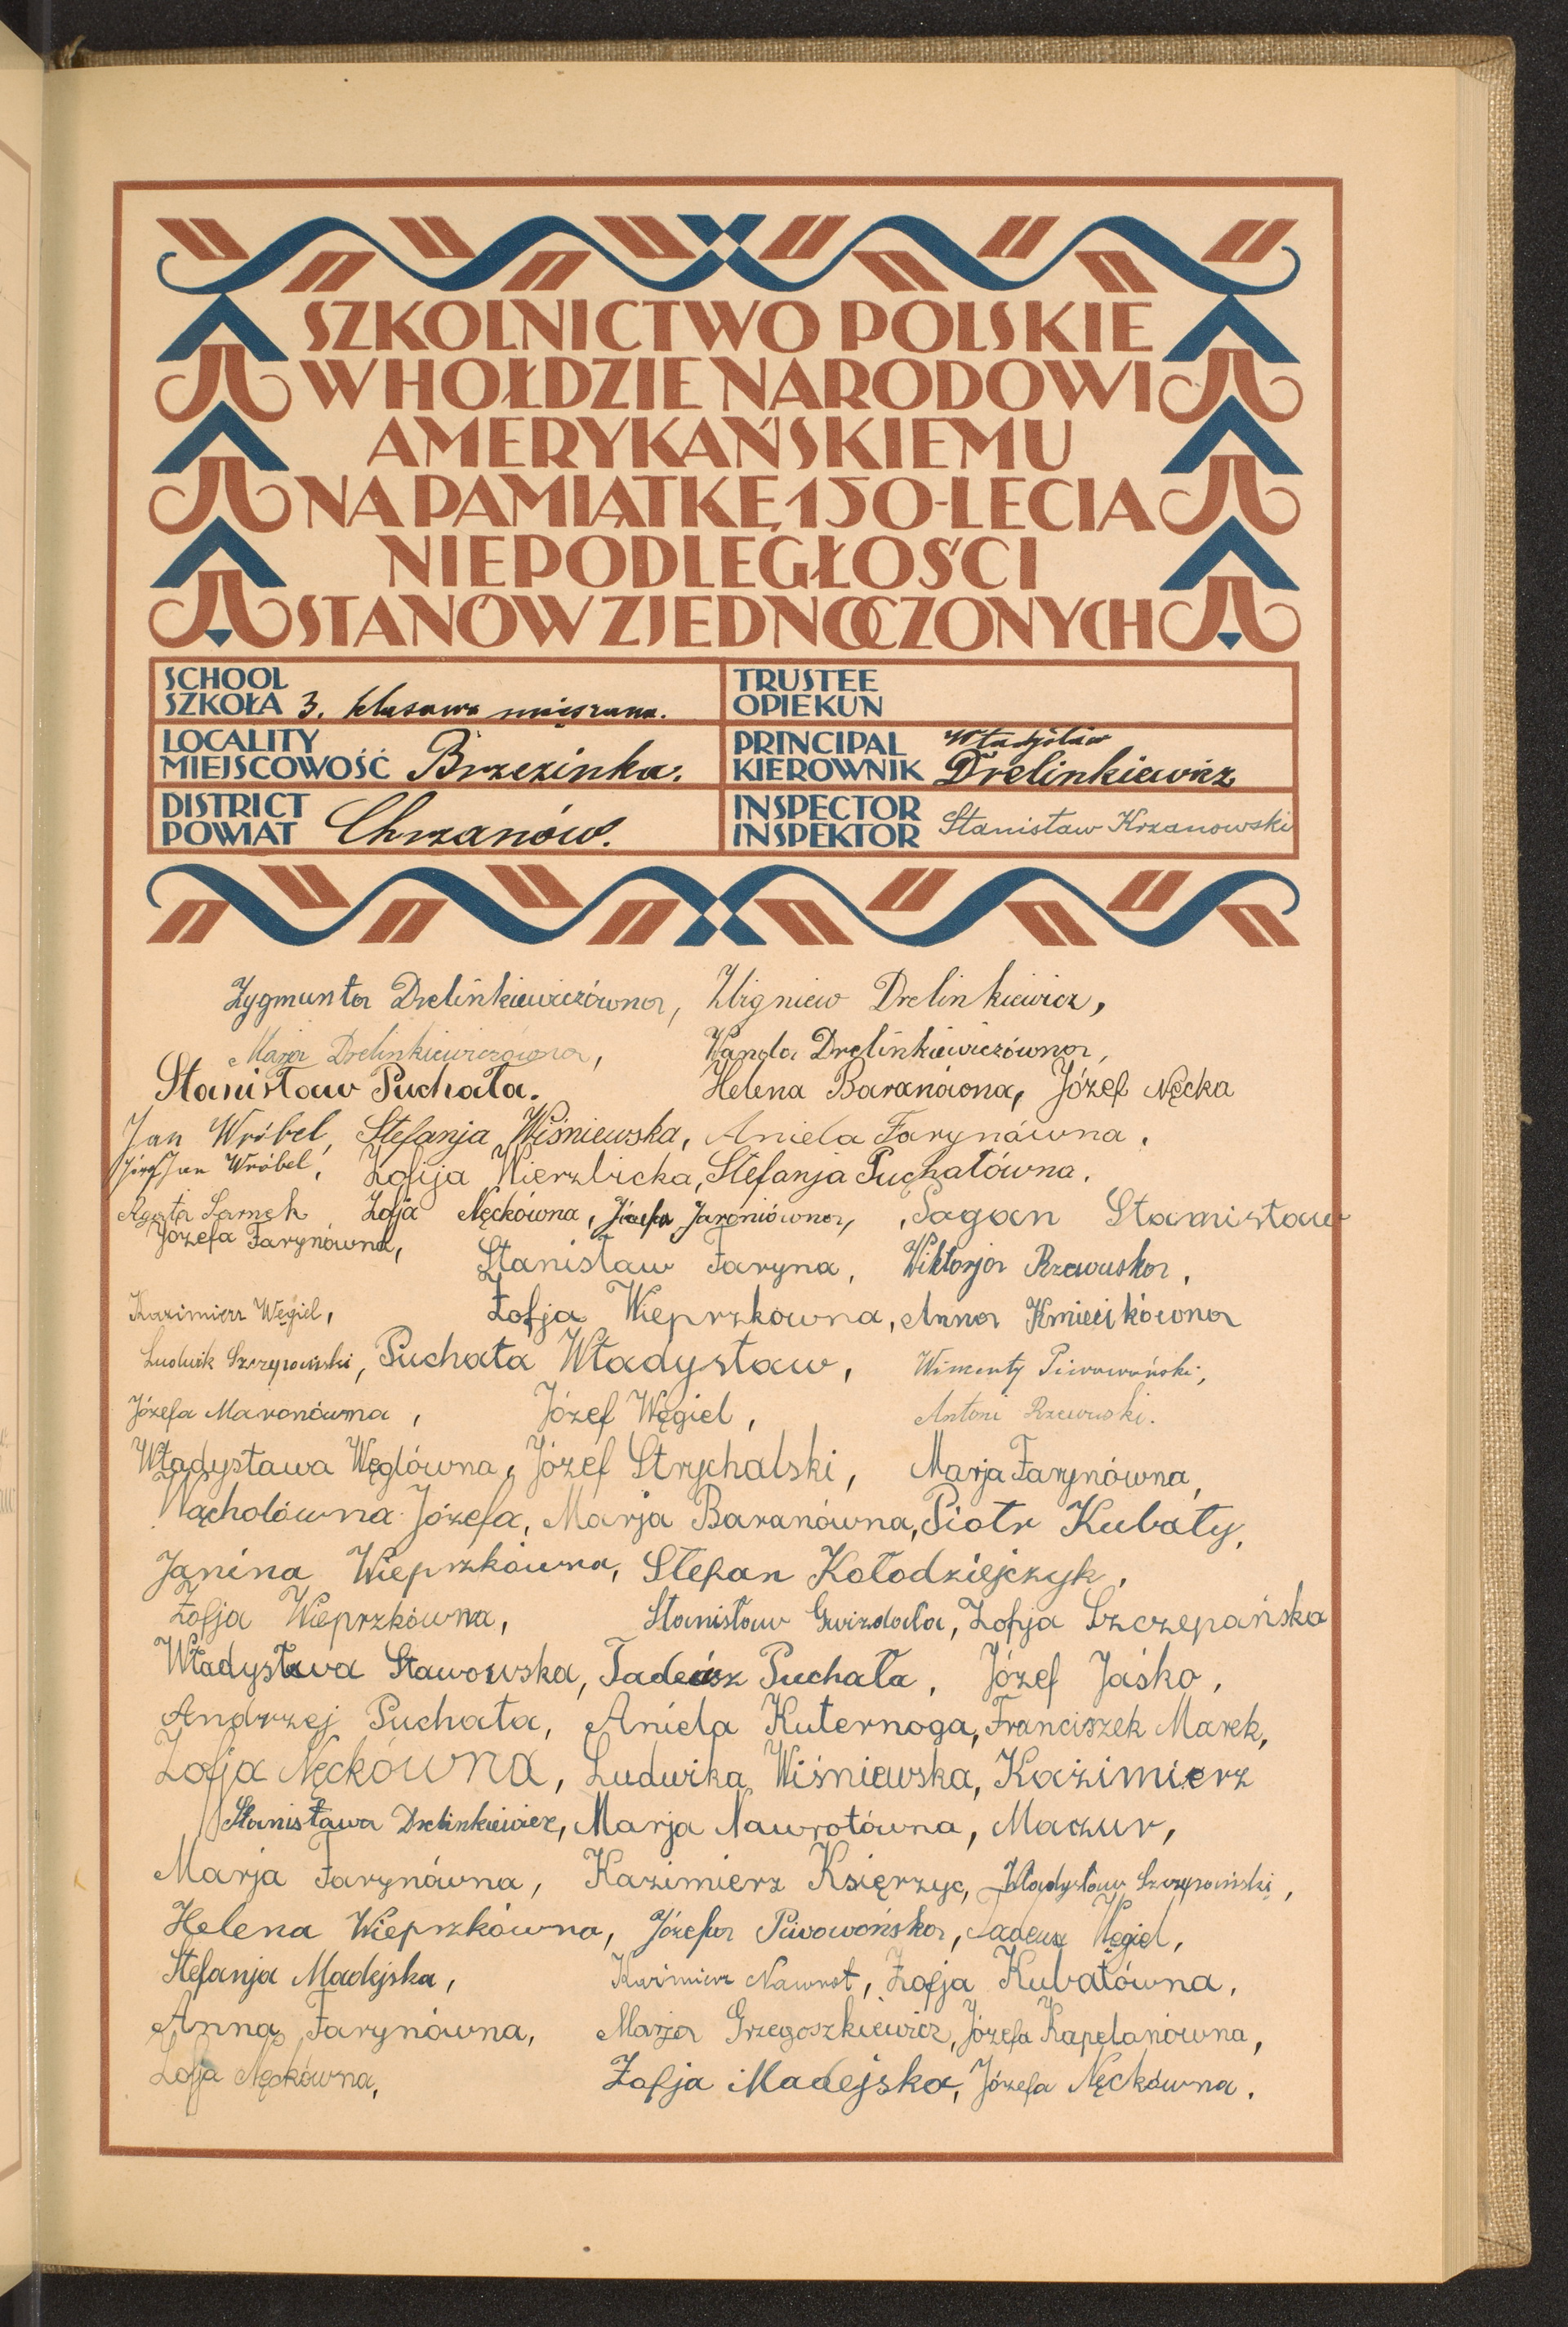 SZKOLNICTWO POLSKIE
W HOŁDZIE NARODOWI
AMERYKAŃSKIEMU
NA PAMIĄTKĘ 150-LECIA
NIEPODLEGŁOŚCI
STANÓW ZJEDNOCZONYCH
SCHOOL
SZKOŁA 3. klasowa mieszana.
TRUSTEE
OPIEKUN
LOCALITY
MIEJSCOWOŚĆ Brzezinka.
PRINCIPAL Władysław
KIEROWNIK Drelinkiewicz
DISTRICT
POWIAT Chrzanów.
INSPECTOR
INSPEKTOR Stanisław Krzanowski
Zygmunta Drelinkiewiczówna, Zbigniew Drelinkiewicz,
Marja Drelinkiewiczówna, Wanda Drelinkiewiczówna,
Stanisław Puchała. Helena Baranówna, Józef Nęcka
Jan Wróbel, Stefanja Wiśniewska, Aniela Farynówna,
Józef Jan Wróbel, Zofija Wierzbicka, Stefanja Puchałówna.
Agata Sarnek Zofja Nęckówna, Józefa Jaroniówna, Sagan Stanisław
Józefa Farynówna, Stanisław Faryna, Wiktorja Rzewuska,
Kazimierz Węgiel, Zofja Wieprzkówna, Anna Kmiecikówna
Ludwik Szczypowiński, Puchała Władysław, Wincenty Piwowoński,
Józefa Maronówna, Józef Węgiel, Antoni Rzewuski.
Władysława Węglówna, Józef Strychalski, Marja Farynówna,
Wącholówna Józefa, Marja Baranówna, Piotr Kubaty,
Janina Wieprzkówna, Stefan Kołodziejczyk,
Zofja Wieprzkówna, Stanisław Gwizdała, Zofja Szczepańska
Władysława Stawowska, Tadeusz Puchała, Józef Jaśko,
Andrzej Puchała, Aniela Kuternoga, Franciszek Marek,
Zofja Nęckówna, Ludwika Wiśniewska, Kazimierz
Stanisława Drelinkiewicz, Marja Nawrotówna, Maczur,
Marja Farynówna, Kazimierz Księrzyc, Władysław Szczypowiński,
Helena Wieprzkówna, Józefa Piwowońska, Tadeusz Węgiel,
Stefanja Madejska, Kazimierz Nawrot, Zofja Kubatówna,
Anna Farynówna, Marja Grzegoszkiewicz, Józefa Kapelanówna,
Zofja Nęckówna, Zofja Madejska, Józefa Nęckówna.